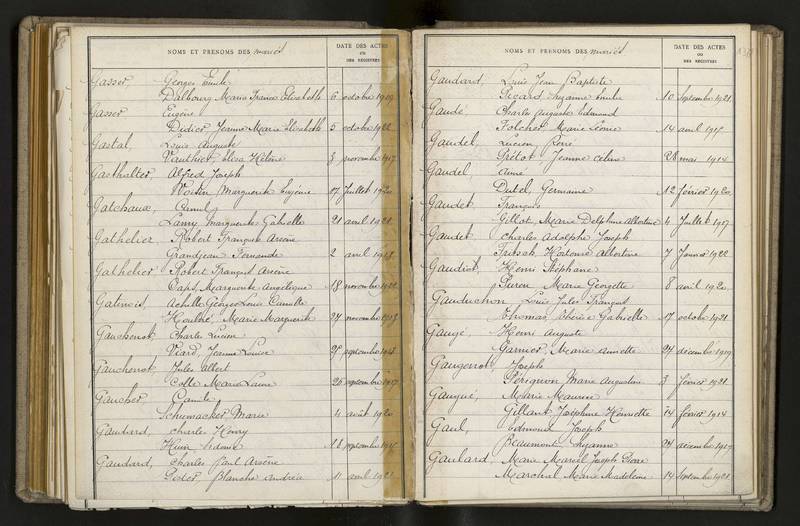 NOMS ET PRENOMS DES mariés
DATE DES ACTES
OU
DES REGISTRES
Gasser, Georges Emile
Dalbourg Marie France Elisabeth 6 octobre 1919
Gasser Eugène
Didier, Jeanne Marie Elisabeth 5 octobre 1922
Gastal, Louis Auguste
Vauthier, Elisa Hélène 8 novembre 1917
Gasthalter, Alfred Joseph
Voirin, Marguerite Eugénie 17 Juillet 1920
Gatchaux, Camil
Lamy Marguerite Gabrielle 21 avril 1921
Gathelier, Robert François Arsène
Grandjean Fernande 2 avril 1918
Gathelier, Robert François Arsène
Caps, Marguerite Angélique 18 novembre 1922
Gatinois, Achille Georges Louis Camille
Houthé, Marie Marguerite 24 novembre
Gauchenot, Charles Lucien
Viard, Jeanne Louise 29 septembre
Gauchenot, Jules Albert
Colle Marie Laure 26 septembre 1917
Gaucher, Camile
Schumacker, Marie 4 août 1920
Gaudard, Charles Henry
Huin 16 septembre
Gaudard, Charles Paul Arsène
Blanche Andréa 11 avril 1921
NOMS ET PRENOMS DES mariés
DATE DES ACTES
OU
DES REGISTRES
Gaudard, Louis Jean Baptiste
Picard Suzanne Emilie 10 Septembre 1921
Gaudé, Charles Auguste Edmond
Folcher, Marie Léonie 14 avril
Gaudel, Lucien René
Prélot, Jeanne Céline 28 mai 1914
Gaudel Aimé
Dutel, Germaine 12 février 1920
Gaudet François
Gillot, Marie Delphine Albertine 4 Juillet 1917
Gaudet Charles Adolphe Joseph
Fritsch Hortense Albertine 7 Janvier 1922
Gaudiot, Henri Stéphane
Puron Marie Georgette 8 avril 1920
Gauduchon, Louis Jules François
Thomas, Gabrielle 17 octobre 1921
Gaugé, Henri Auguste
Garnier, Marie Annette 27 décembre 1919
Gaugenot, Joseph
Pérignon Marie Augustine 3 février 1921
Gaugué, Marie Maurice
Gillant Joséphine Henriette 14 février 1914
Gaul, Edmond Joseph
Beaumont Suzanne 24 décembre 1919
Gaulard, Marie Marcel Joseph Pierre
Marchal Marie Madeleine 14 Septembre 1921